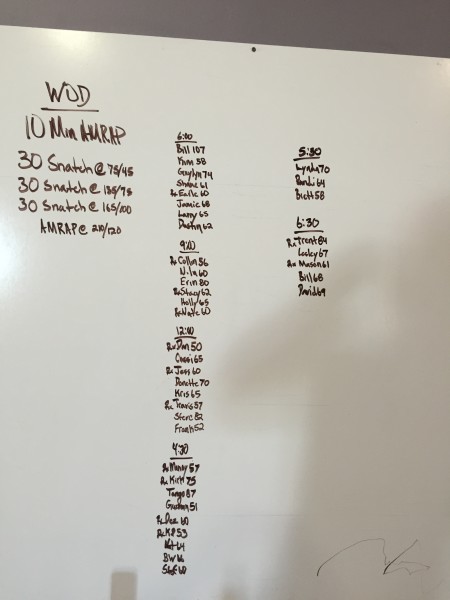 WOD
10 Min AMRAP
30 Snatch @ 75/45
30 Snatch @ 135/75
30 Snatch @ 165/100
AMRAP @ 210/120
6:00
Bill 107
Kim 58
Gaylyn 74
Shane 61
Rx Earle 60
Jamie 68
Larry 65
Dustin 62
9:00
Rx Collin 56
60
Erin 80
Rx Stacy 62
Holly 65
Rx Nate 60
12:00
Rx Dan 50
Cassi 65
Rx Jess 60
Danette 70
Kris 65
Rx Travis 57
Steve 82
Frank 52
4:30
Rx Manny 57
Rx Kirk 75
Tango 87
Graham 51
Rx Dee 60
Rx KP 53
64
BW 66
Steve
5:30
Lynda 70
Randi 64
Brett 58
6:30
Rx Trent 84
Lecky 67
Rx Mason 61
Bill 68
David 69